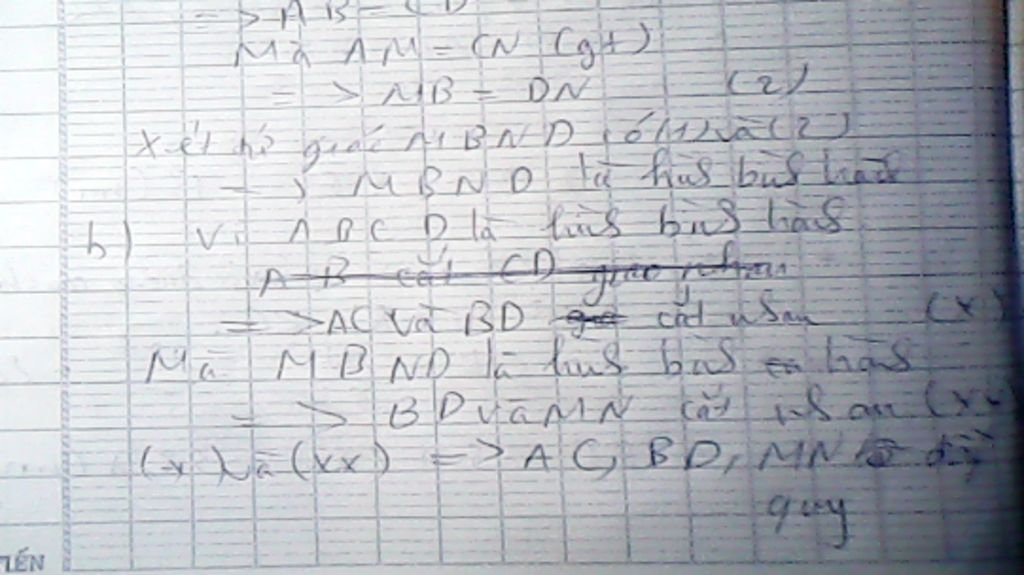 => AB = CD
Mà AM = CN (gt)
=> MB = DN (2)
Xét tứ giác MBND có (1) và (2)
=> MBND là hình bình hành
b) Vì ABCD là hình bình hành
AB cắt CD giao nhau
=> AC và BD cắt nhau (x)
Mà MBND là hình bình hành
=> BD và MN cắt nhau (xx)
(x) và (xx) => AC, BD, MN đồng
quy
TIẾN